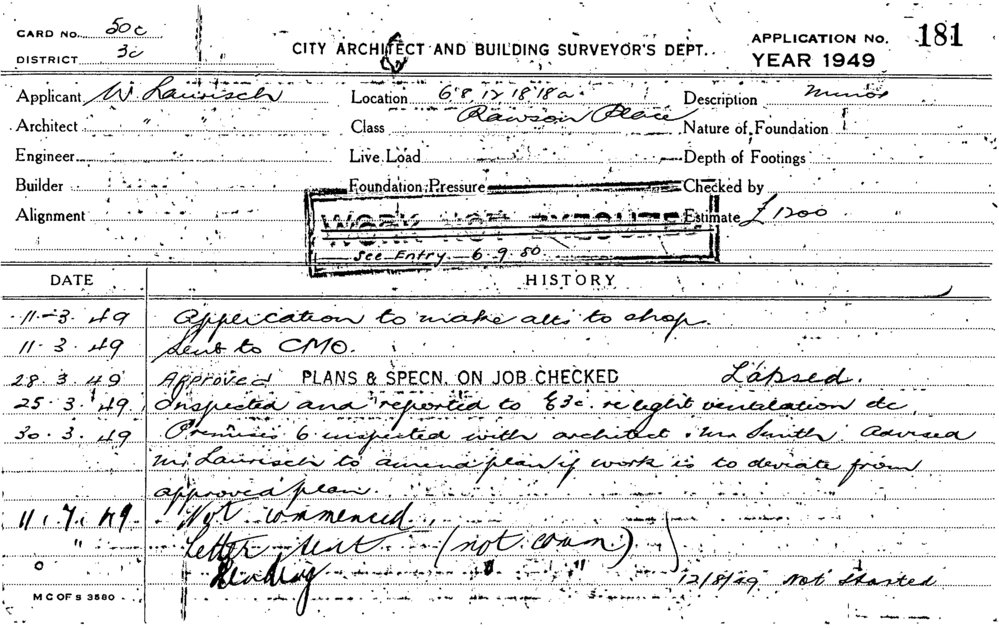 CARD No. 50c
DISTRICT 3c
CITY ARCHITECT AND BUILDING SURVEYOR'S DEPT.
APPLICATION No. 181
YEAR 1949
Applicant W Laurisch Location 6 8, 12 18 18a Description minor
Architect " " Class Rawson Place Nature of Foundation
Engineer Live Load Depth of Footings
Builder Foundation Pressure Checked by
Alignment WORK NOT EXECUTED Estimate £1200
See Entry 6.9.50
DATE HISTORY
11-3.49 Application to make alts to shop.
11.3.49 Sent to CMO.
28.3.49 Approved PLANS & SPECN. ON JOB CHECKED Lapsed.
25.3.49 Inspected and reported to E3c. re light ventilation etc
30.3.49 Premises 6 inspected with architect. Mr Smith advised
Mr Laurisch to amend plan if work is to deviate from
approved plan.
11.7.49 Not commenced
" Letter sent (not com)
" "
12/8/49 Not Started
M C OF S 3580